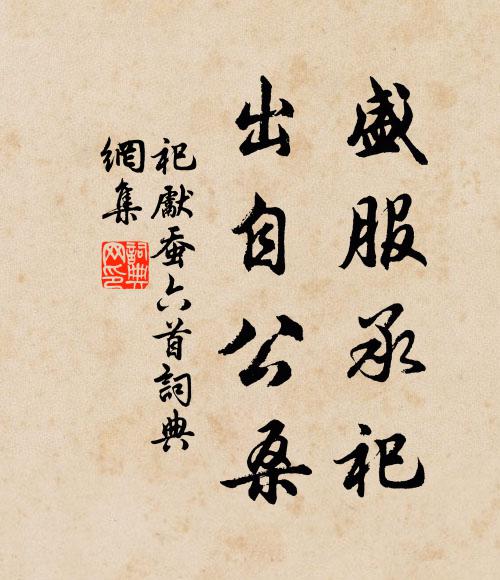 盛服承祀
出自公桑
祀獻蚕六首詞典
網集
詞典
网印